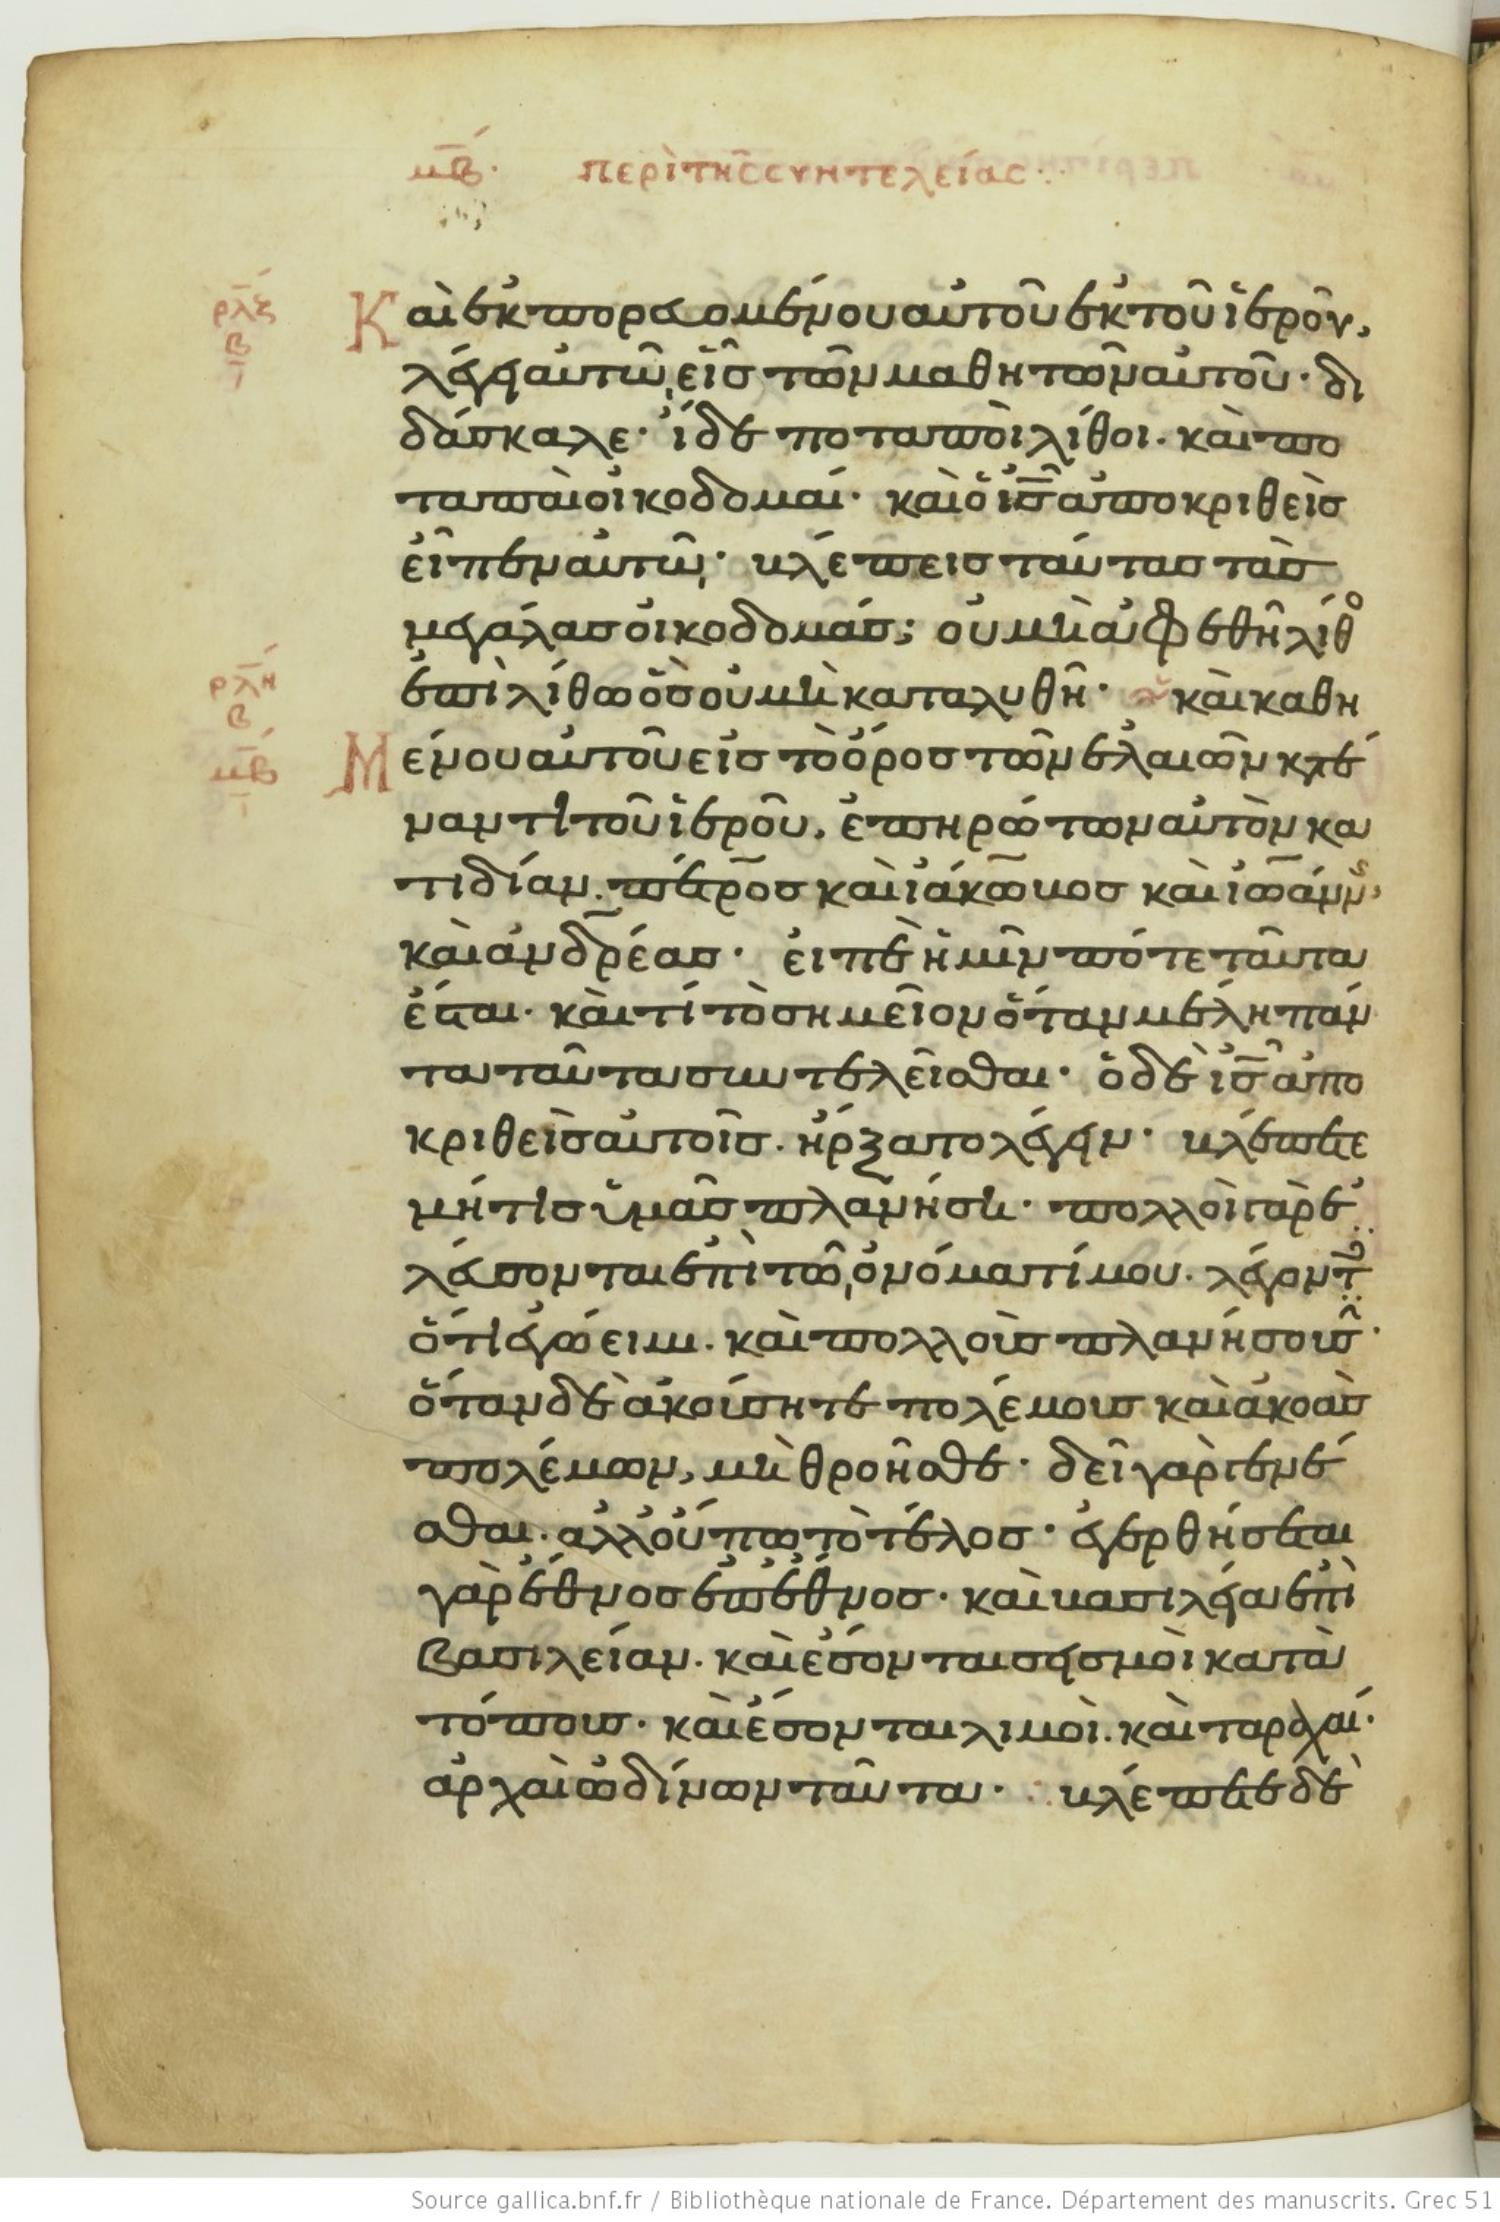 μβ. περὶ τῆς συντελείας
ρλζ
β
Καὶ ἐκπορευομένου αὐτοῦ ἐκ τοῦ ἱεροῦ,
λέγει αὐτῷ εἷς τῶν μαθητῶν αὐτοῦ· δι
δάσκαλε· ἴδε ποταποὶ λίθοι. καὶ πο
ταπαὶ οἰκοδομαί· καὶ ὁ ις ἀποκριθεὶς
εἶπεν αὐτῷ· βλέπεις ταύτας τὰς
μεγάλας οἰκοδομάς; οὐ μὴ ἀφεθῆ λίθο
ἐπὶ λίθω ὃς οὐ μὴ καταλυθῆ· καὶ καθη
ρλη
β
μβ
Μένου αὐτοῦ εἰς τὸ ὄρος τῶν ἐλαιῶν κατέ
ναντι τοῦ ἱεροῦ, ἐπηρώτων αὐτὸν κα
τιδίαν. πέτρος καὶ ἰάκωβος καὶ ἰωάνν
καὶ ἀνδρέας· εἰπὲ ἡμῖν πότε ταῦτα
ἔσται. καὶ τί τὸ σημεῖον ὅταν μέλλη πάν
τα ταῦτα συντελεῖσθαι· ὁ δὲ ις ἀπο
κριθεὶς αὐτοῖς. ἤρξατο λέγειν· βλέπετε
μή τις ὑμᾶς πλανήση· πολλοὶ γὰρ ἐ
λεύσονται ἐπὶ τῷ ὀνόματί μου. λέγοντ
ὅτι ἐγώ εἰμι. καὶ πολλοὺς πλανήσουσ·
ὅταν δὲ ἀκούσητε πολέμους καὶ ἀκοὰς
πολέμων, μὴ θροῆσθε· δεῖ γὰρ γενέ
σθαι. ἀλλ οὔπω τὸ τέλος· ἐγερθήσεται
γὰρ ἔθνος ἐπ ἔθνος. καὶ βασιλεία ἐπὶ
βασιλείαν. καὶ ἔσονται σεισμοὶ κατὰ
τόπους. καὶ ἔσονται λιμοὶ. καὶ ταραχαί.
ἀρχαὶ ὠδίνων ταῦτα· βλέπετε δὲ
Source gallica.bnf.fr / Bibliothèque nationale de France. Département des manuscrits. Grec 51